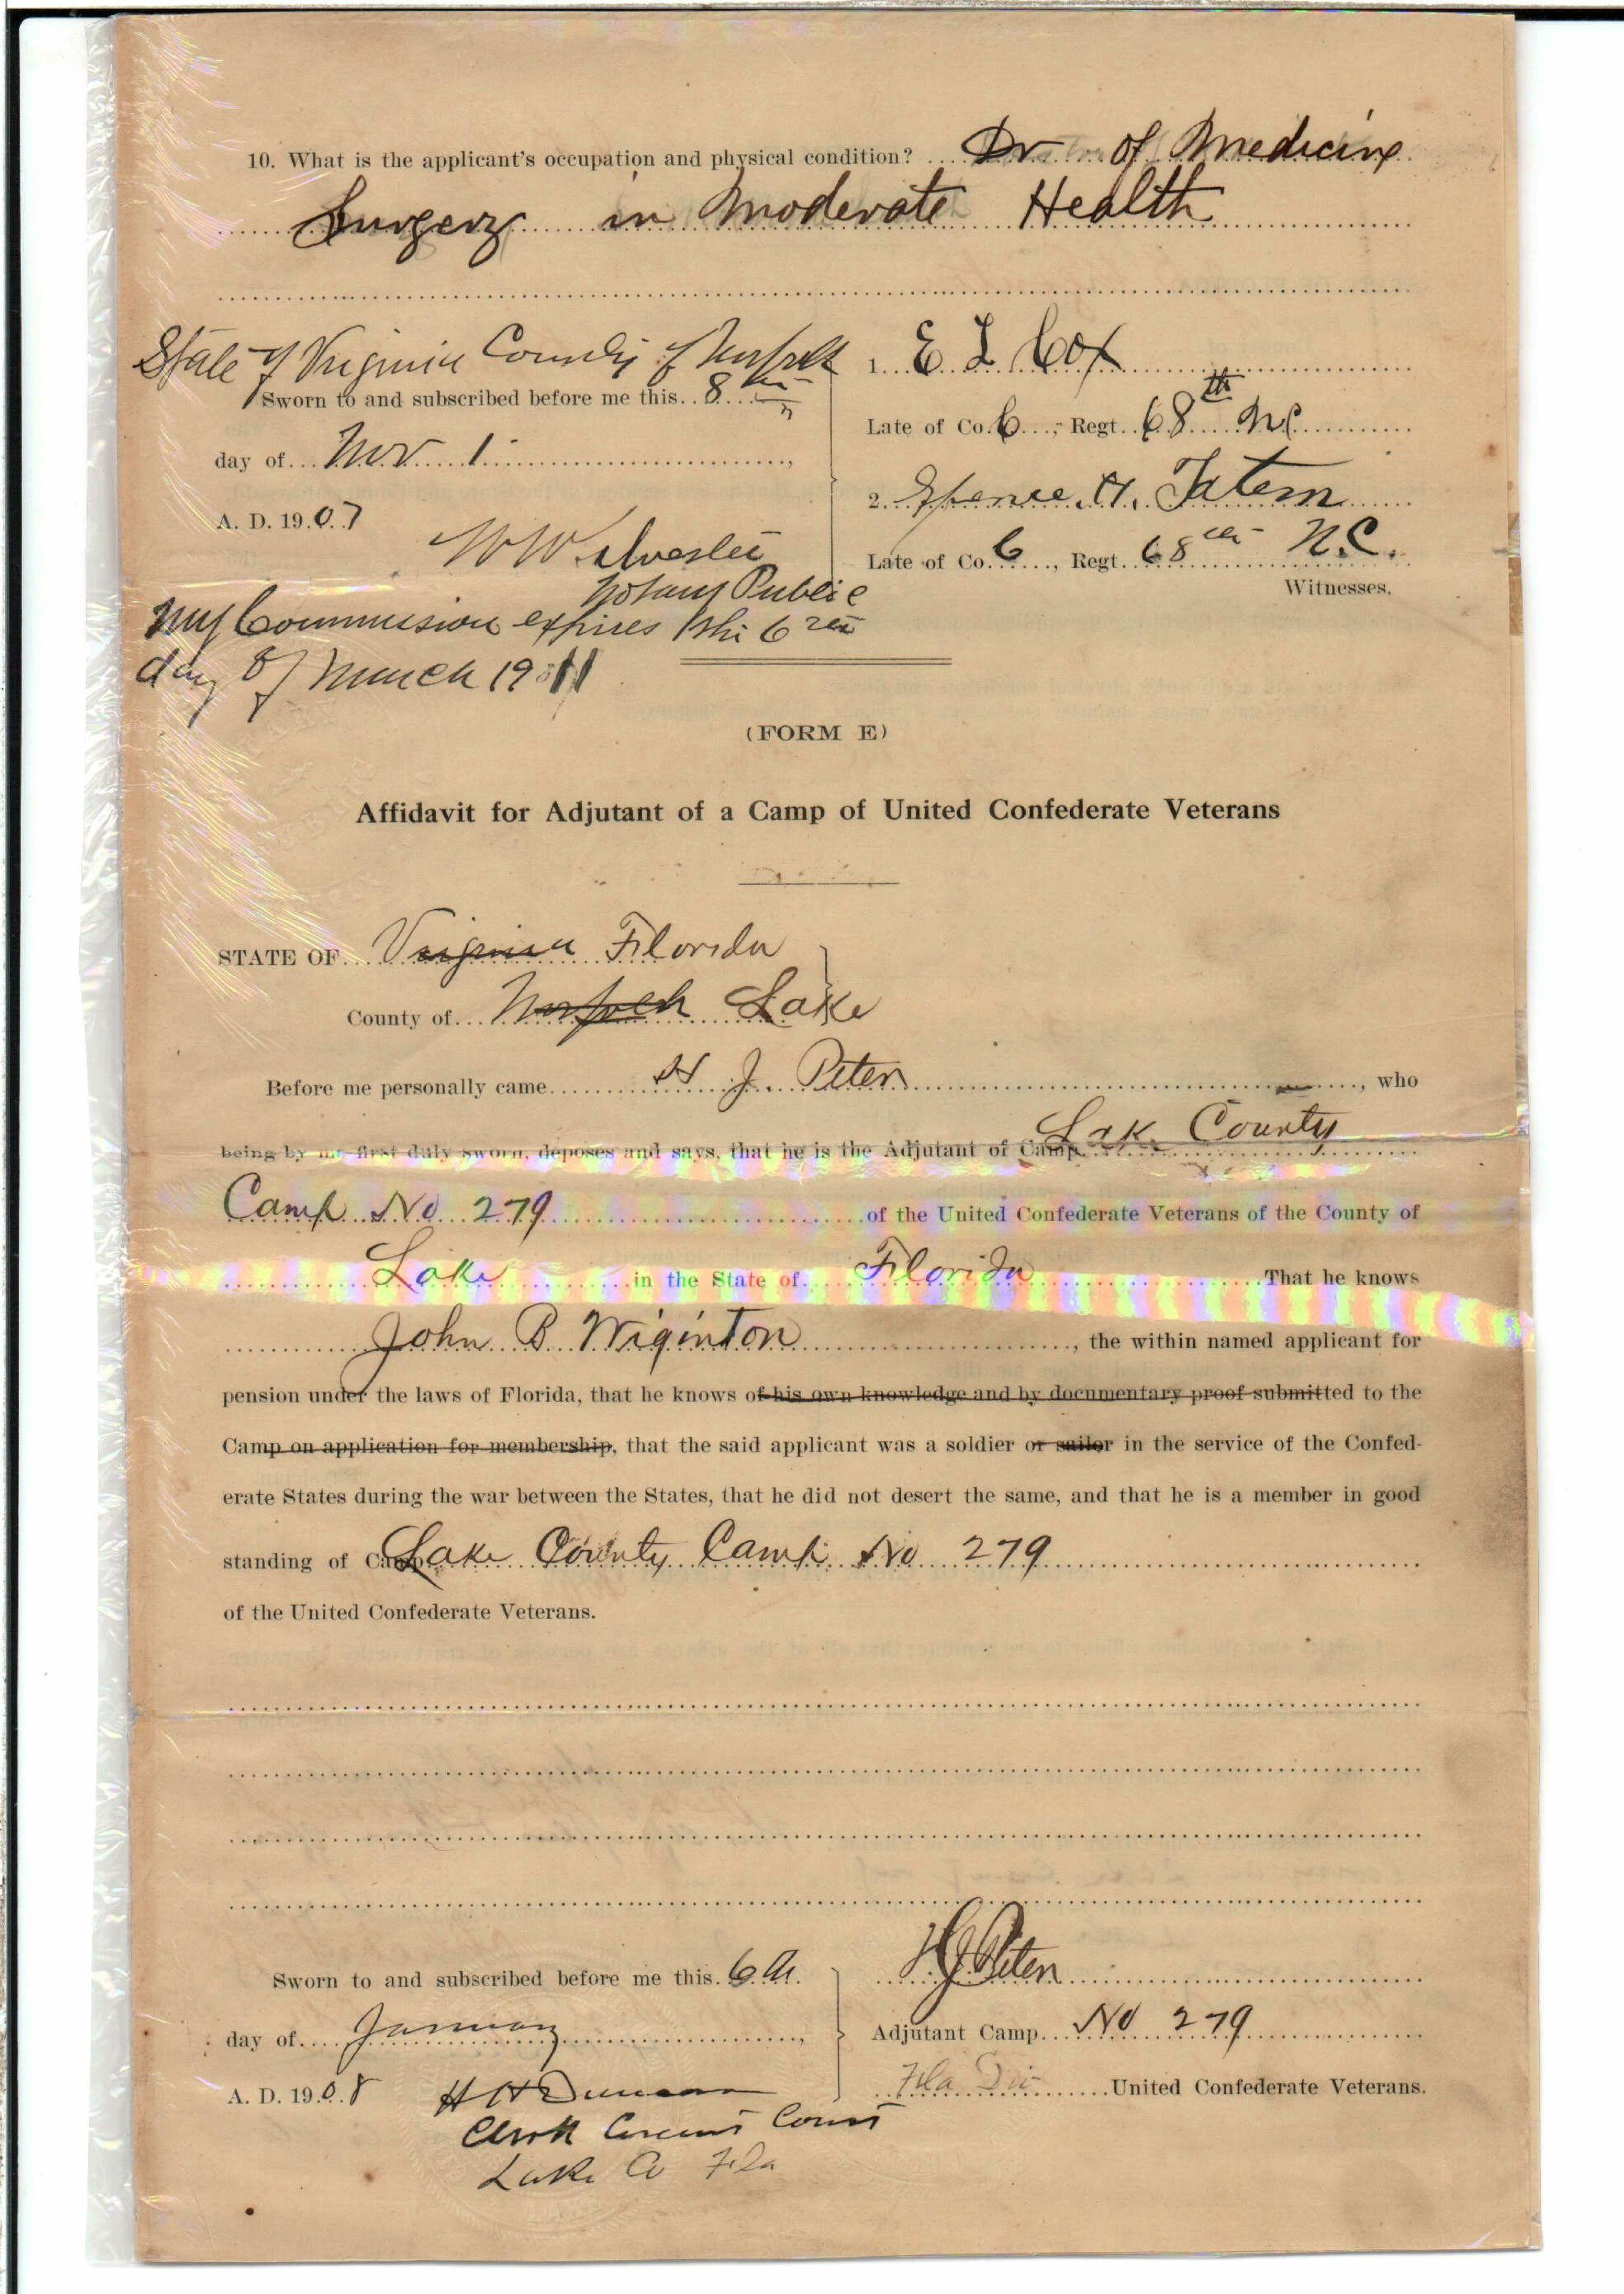 10. What is the applicant's occupation and physical condition? Dr of Medicine
Surgery in Moderate Health
State of Virginia County of Norfolk
Sworn to and subscribed before me this 8th
day of Nov
A. D. 1907
W W
Notary Public
My Commission expires the 6
day of March 1911
1. E L Cox
Late of Co. 6, Regt. 68th NC
2. Spence H. Tatem
Late of Co. 6, Regt. 68th N.C.
Witnesses.
(FORM E)
Affidavit for Adjutant of a Camp of United Confederate Veterans
STATE OF Virginia Florida
County of Norfolk Lake
Before me personally came H J. Peter, who
being by me first duly sworn, deposes and says, that he is the Adjutant of Camp Lake County
Camp No 279 of the United Confederate Veterans of the County of
Lake in the State of Florida That he knows
John B Wiginton, the within named applicant for
pension under the laws of Florida, that he knows of his own knowledge and by documentary proof submitted to the
Camp on application for membership, that the said applicant was a soldier or sailor in the service of the Confed-
erate States during the war between the States, that he did not desert the same, and that he is a member in good
standing of Camp Lake County Camp No 279
of the United Confederate Veterans.
Sworn to and subscribed before me this 6th
day of January
A. D. 1908
H H Duncan
Clerk Circuit Court
Lake Co Fla
H J Peter
Adjutant Camp No 279
Fla Div United Confederate Veterans.